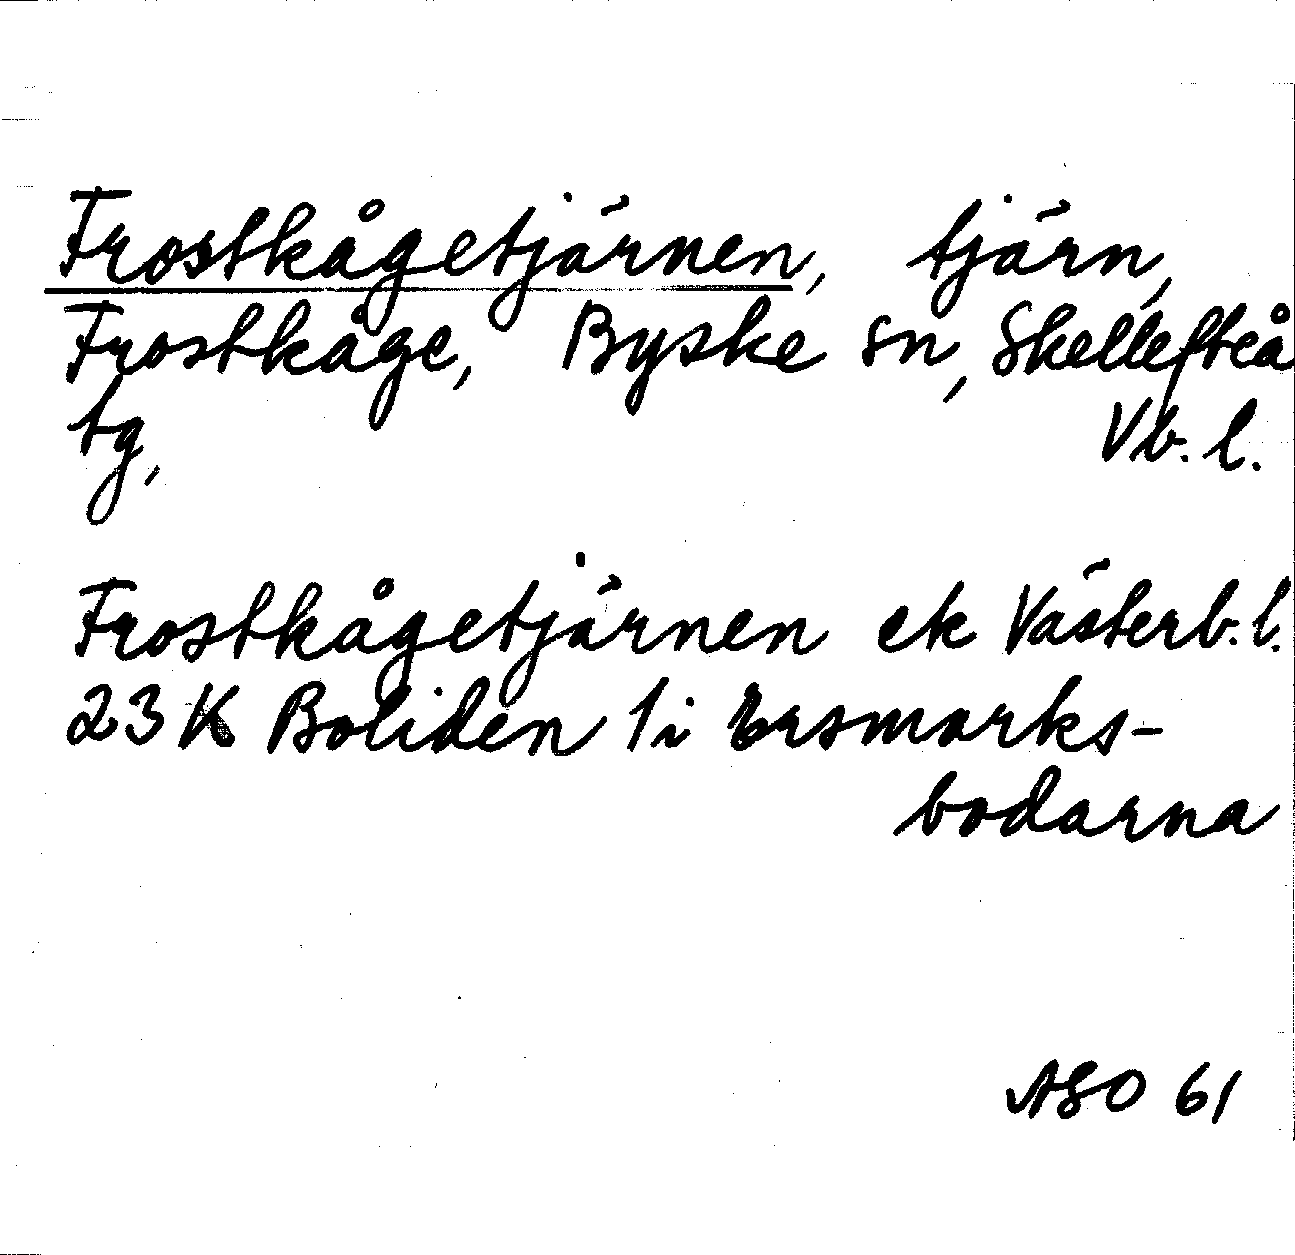 Frostkågetjärnen, tjärn,
Frostkåge, Byske sn, Skellefteå
tg, Vb. l.
Frostkågetjärnen ek Västerb. l.
23 K Boliden 1i Ersmarks-
bodarna
ASO 61